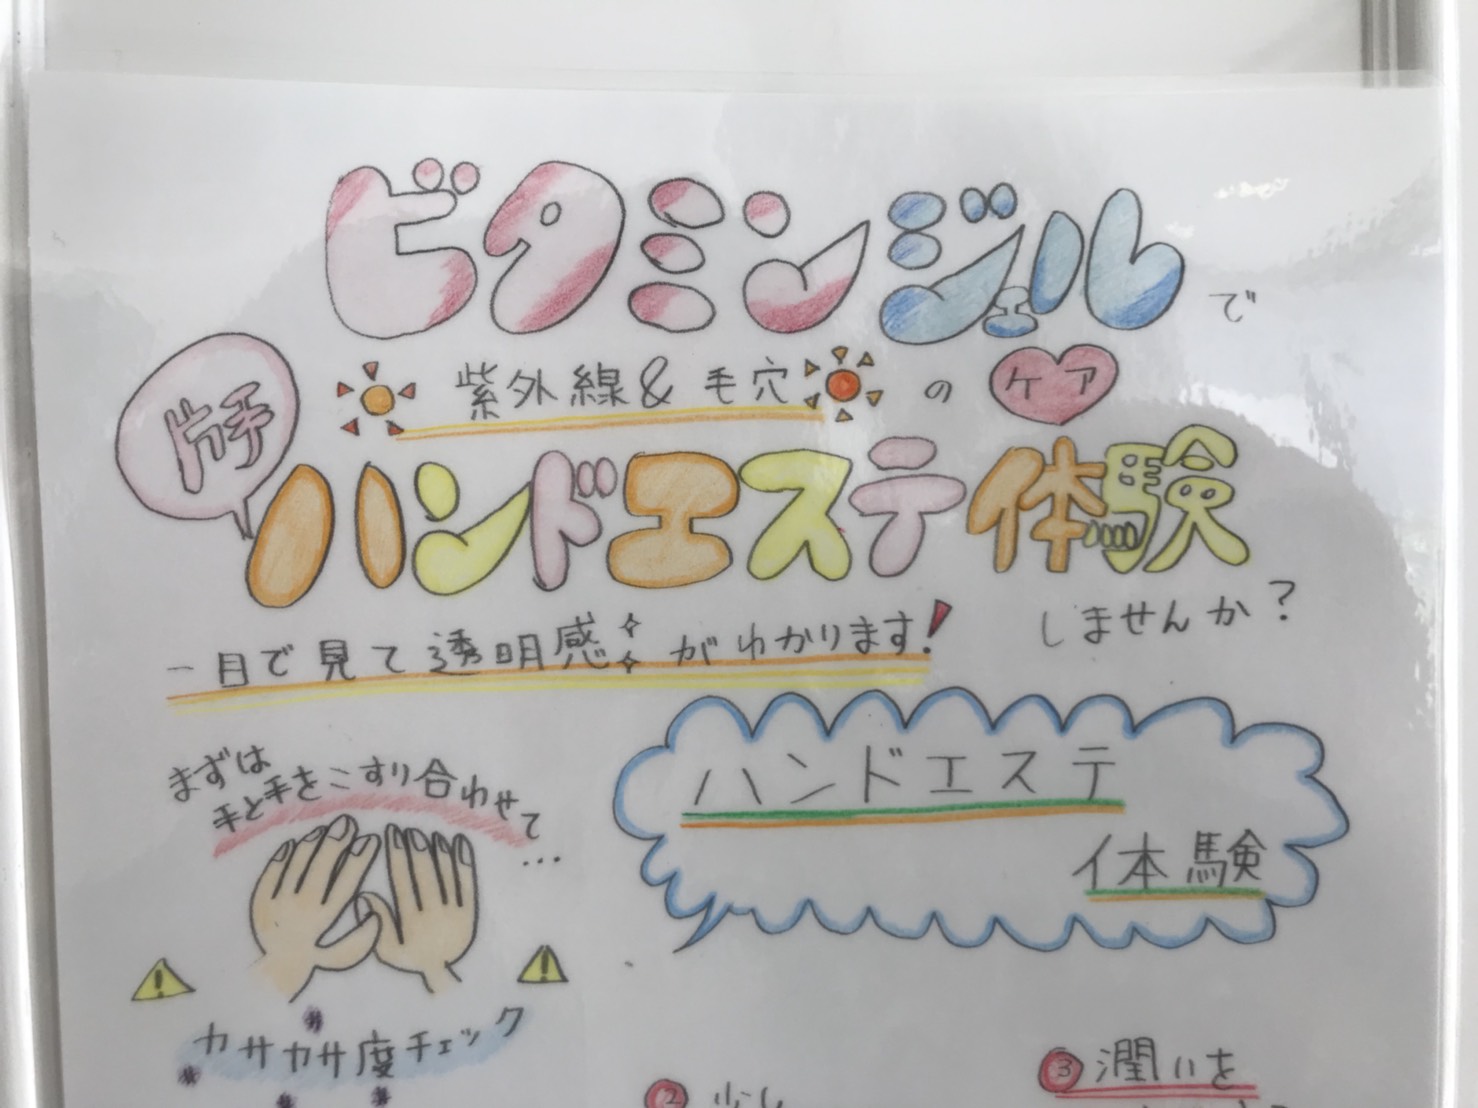 ビタミンジェルで
紫外線&毛穴のケア
片手
ハンドエステ体験
しませんか?
一目で見て透明感がわかります!
まずは
手と手をこすり合わせて…
ハンドエステ
体験
カサカサ度チェック
② 少し
③ 潤いを